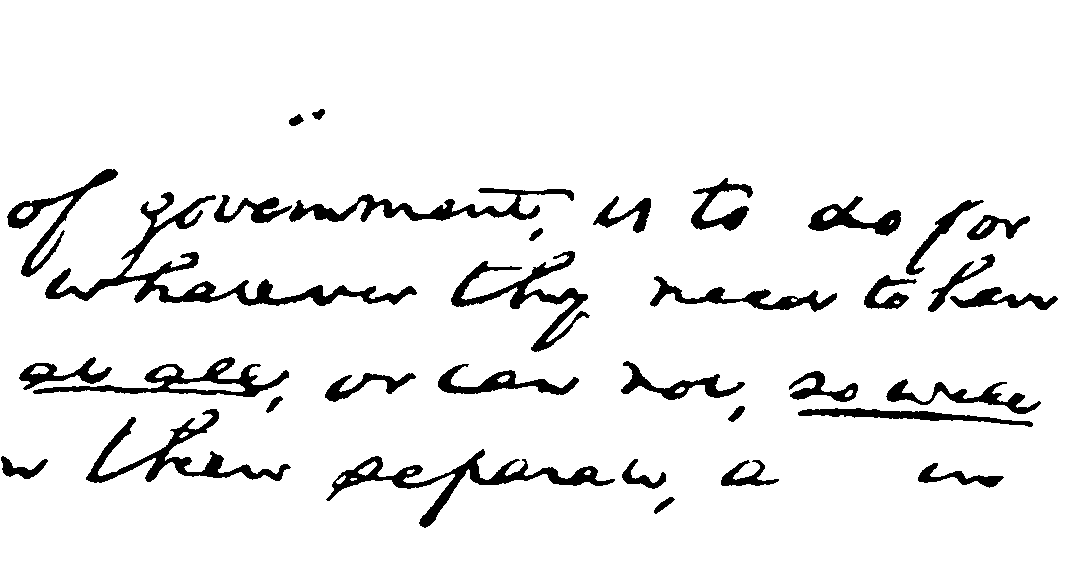 of government, is to do for
whatever they need to have
at all, or can not, so well
in their separate, a in